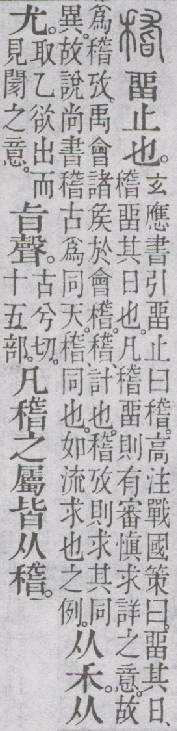 稽 畱止也。玄應書引畱止曰稽。高注戰國策曰。畱其日、稽畱其日也。凡稽畱則有審慎求詳之意。故
爲稽攷。禹會諸矦於會稽。稽計也。稽攷則求其同異。故說尚書稽古爲同天。稽同也。如流求也之例。从禾。从
尤。取乙欲出而見閡之意。㫖聲。古兮切。十五部。凡稽之屬皆从稽。